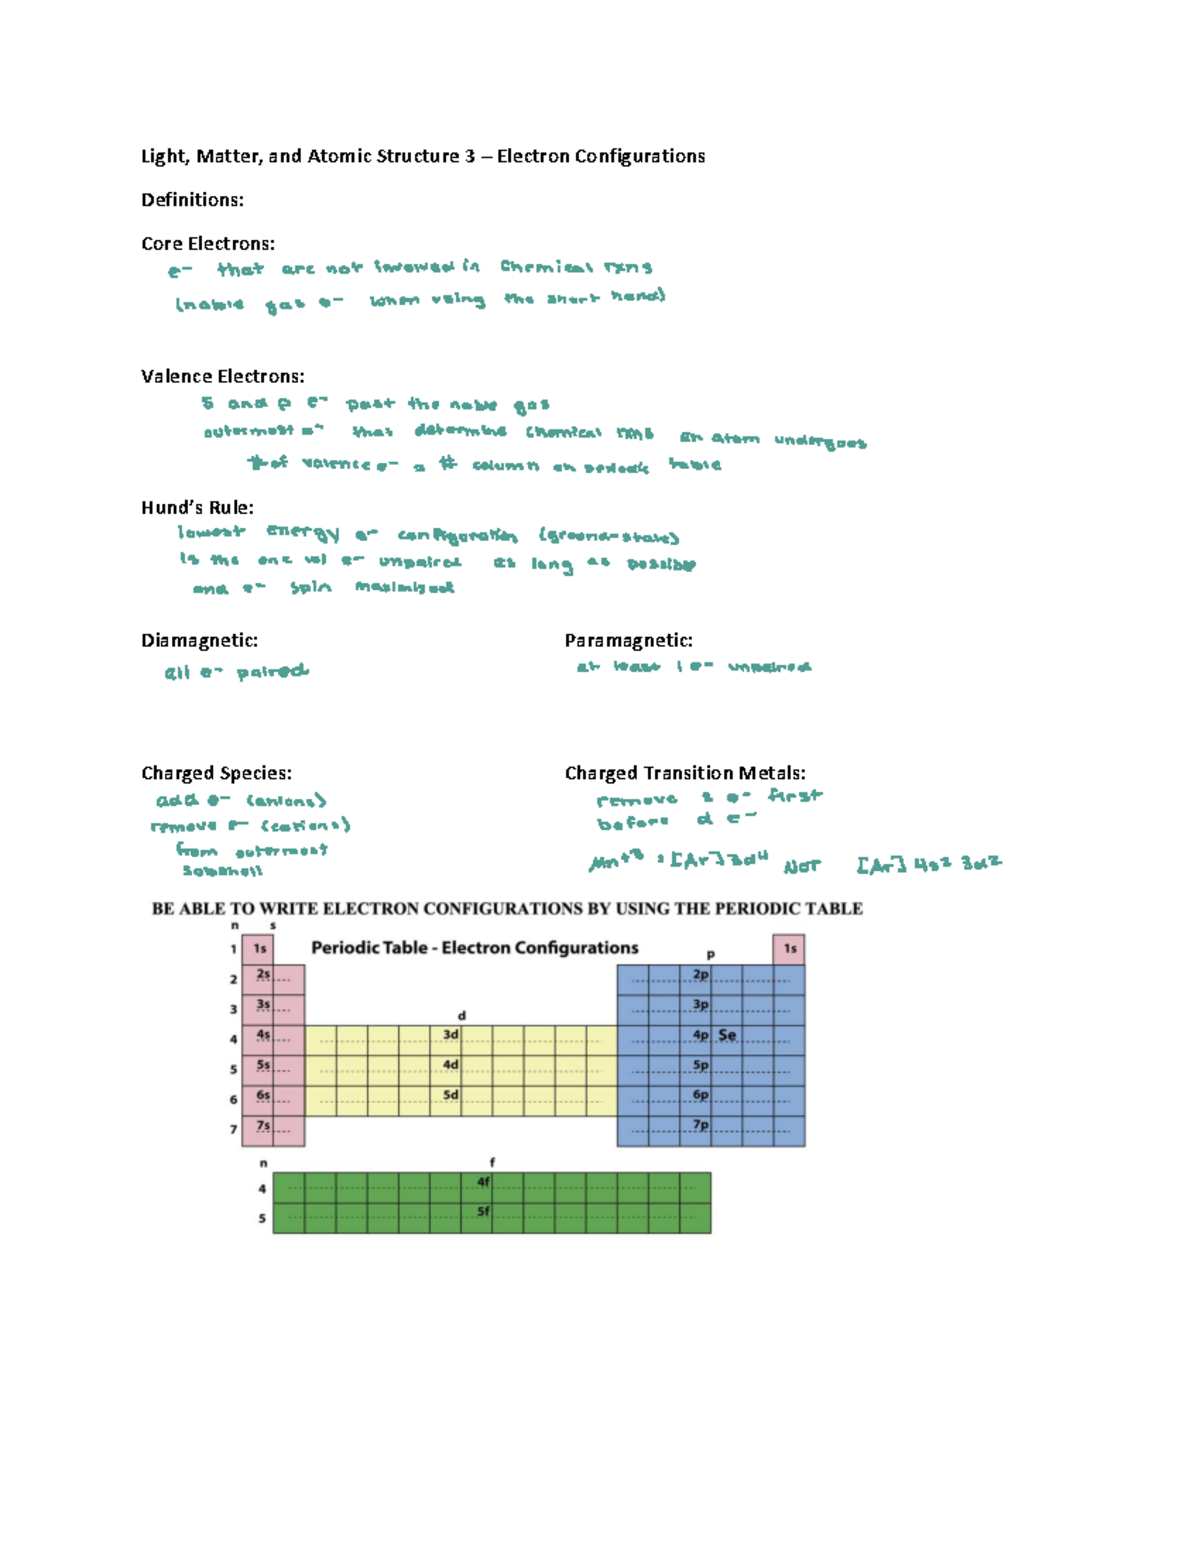 Light, Matter, and Atomic Structure 3 – Electron Configurations
Definitions:
Core Electrons:
e- that are not involved in chemical rxns
(noble gas e- when using the short hand)
Valence Electrons:
s and p e- past the noble gas
outermost e- that determine chemical rxns an atom undergoes
# of valence e- = # column on periodic table
Hund's Rule:
lowest energy e- configuration (ground-state)
is the one w/ e- unpaired as long as possible
and e- spin maximized
Diamagnetic: Paramagnetic:
all e- paired at least 1 e- unpaired
Charged Species: Charged Transition Metals:
add e- (anions) remove s e- first
remove e- (cations) before d e-
from outermost
subshell
Mn+3 : [Ar] 3d4 NOT [Ar] 4s2 3d2
BE ABLE TO WRITE ELECTRON CONFIGURATIONS BY USING THE PERIODIC TABLE
n s
1 1s Periodic Table - Electron Configurations p 1s
2 2s 2p
3 3s d 3p
4 4s 3d 4p Se
5 5s 4d 5p
6 6s 5d 6p
7 7s 7p
n f
4 4f
5 5f